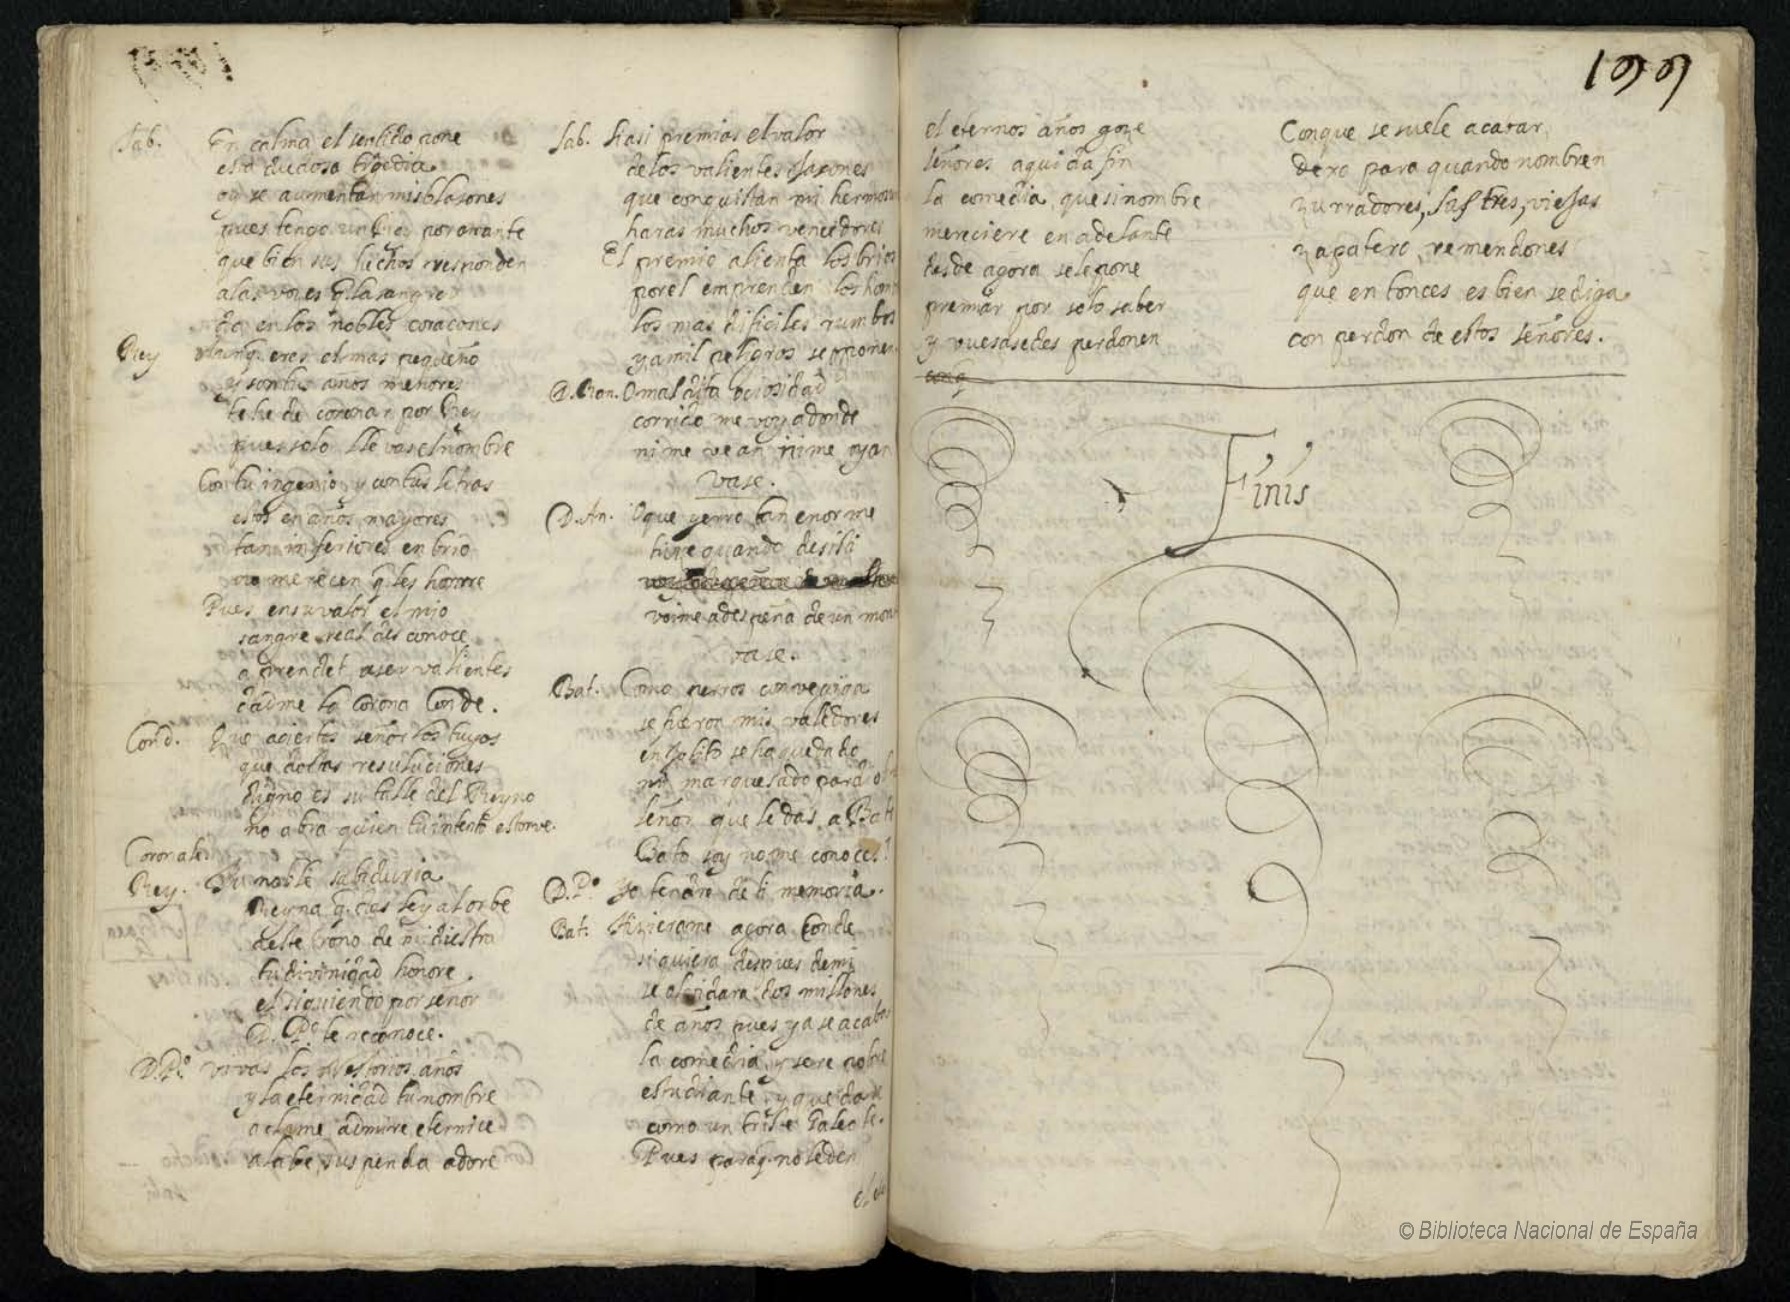 Sab. En calma el sentido pone
esta dudosa tragedia
oy se aumentan mis blasones
pues tengo un hijo por amante
que bien sus hechos responden
a las voces q̃ la sangre
da en los nobles coraçones
Rey Aunq̃ eres el mas pequeño
y son tus años menores
te he de coronar por Rey
pues solo llevas el nombre
Con tu ingenio y con tus letras
estos en años mayores
tan inferiores en brio
no merecen q̃ les honrre
Pues en su valor el mio
sangre real desconoce
aprended a ser valientes
dadme la Corona Conde.
Cond. Que aciertos señor los tuyos
que doctas resuluciones
digno es su talle del Reyno
no abra quien tu intento estorve.
Coronale
Rey. Tu noble sabiduria
Reyna q̃ das ley al orbe
deste trono de mi diestra
tu divinidad honore.
el siguiendo por señor
D. P.º te reconoce.
D. P.º vivas los Nestorios años
y la eternidad tu nombre
aclame admire eternice
alabe suspenda adore
Sab. Si asi premias el valor
de los valientes
que conquistan mi hermosu
haras muchos vencedores
El premio alienta los brios
por el emprenden los hom
los mas dificiles rumbos
y a mil peligros se oponen
D. Ran. O maldita ociosidad
corrido me voy a donde
ni me vean ni me oyan
vase.
D. An. O que yerro tan enorme
tuve quando desisti
voime a despeña de un mon
vase.
Bat. Como perros con vegiga
se fueron mis valedores
en se ha quedado
mi marquesado par
señor que le das a Bat
Bato soy no me conoces?
D. P.º Yo tendre de ti memoria.
Bat. Hizierame agora Conde
siquiera despues de mi
se olvidara dos millones
de años pues ya se acaba
la comedia y sere pobre
estudiante, y quedare
como un triste Galeote.
Pues paraq̃ no le den
el et
199
el eternos años goze
señores aqui da fin
la comedia, que si nombre
mereciere en adelante
desde agora se le pone
premiar por solo saber
y vuesasedes perdonen
conq
Conque se suele acavar
dexo para quando nombren
zurradores, sastres, viejas
zapatero, remendones
que entonces es bien se diga
con perdon de estos señores.
Finis
© Biblioteca Nacional de España